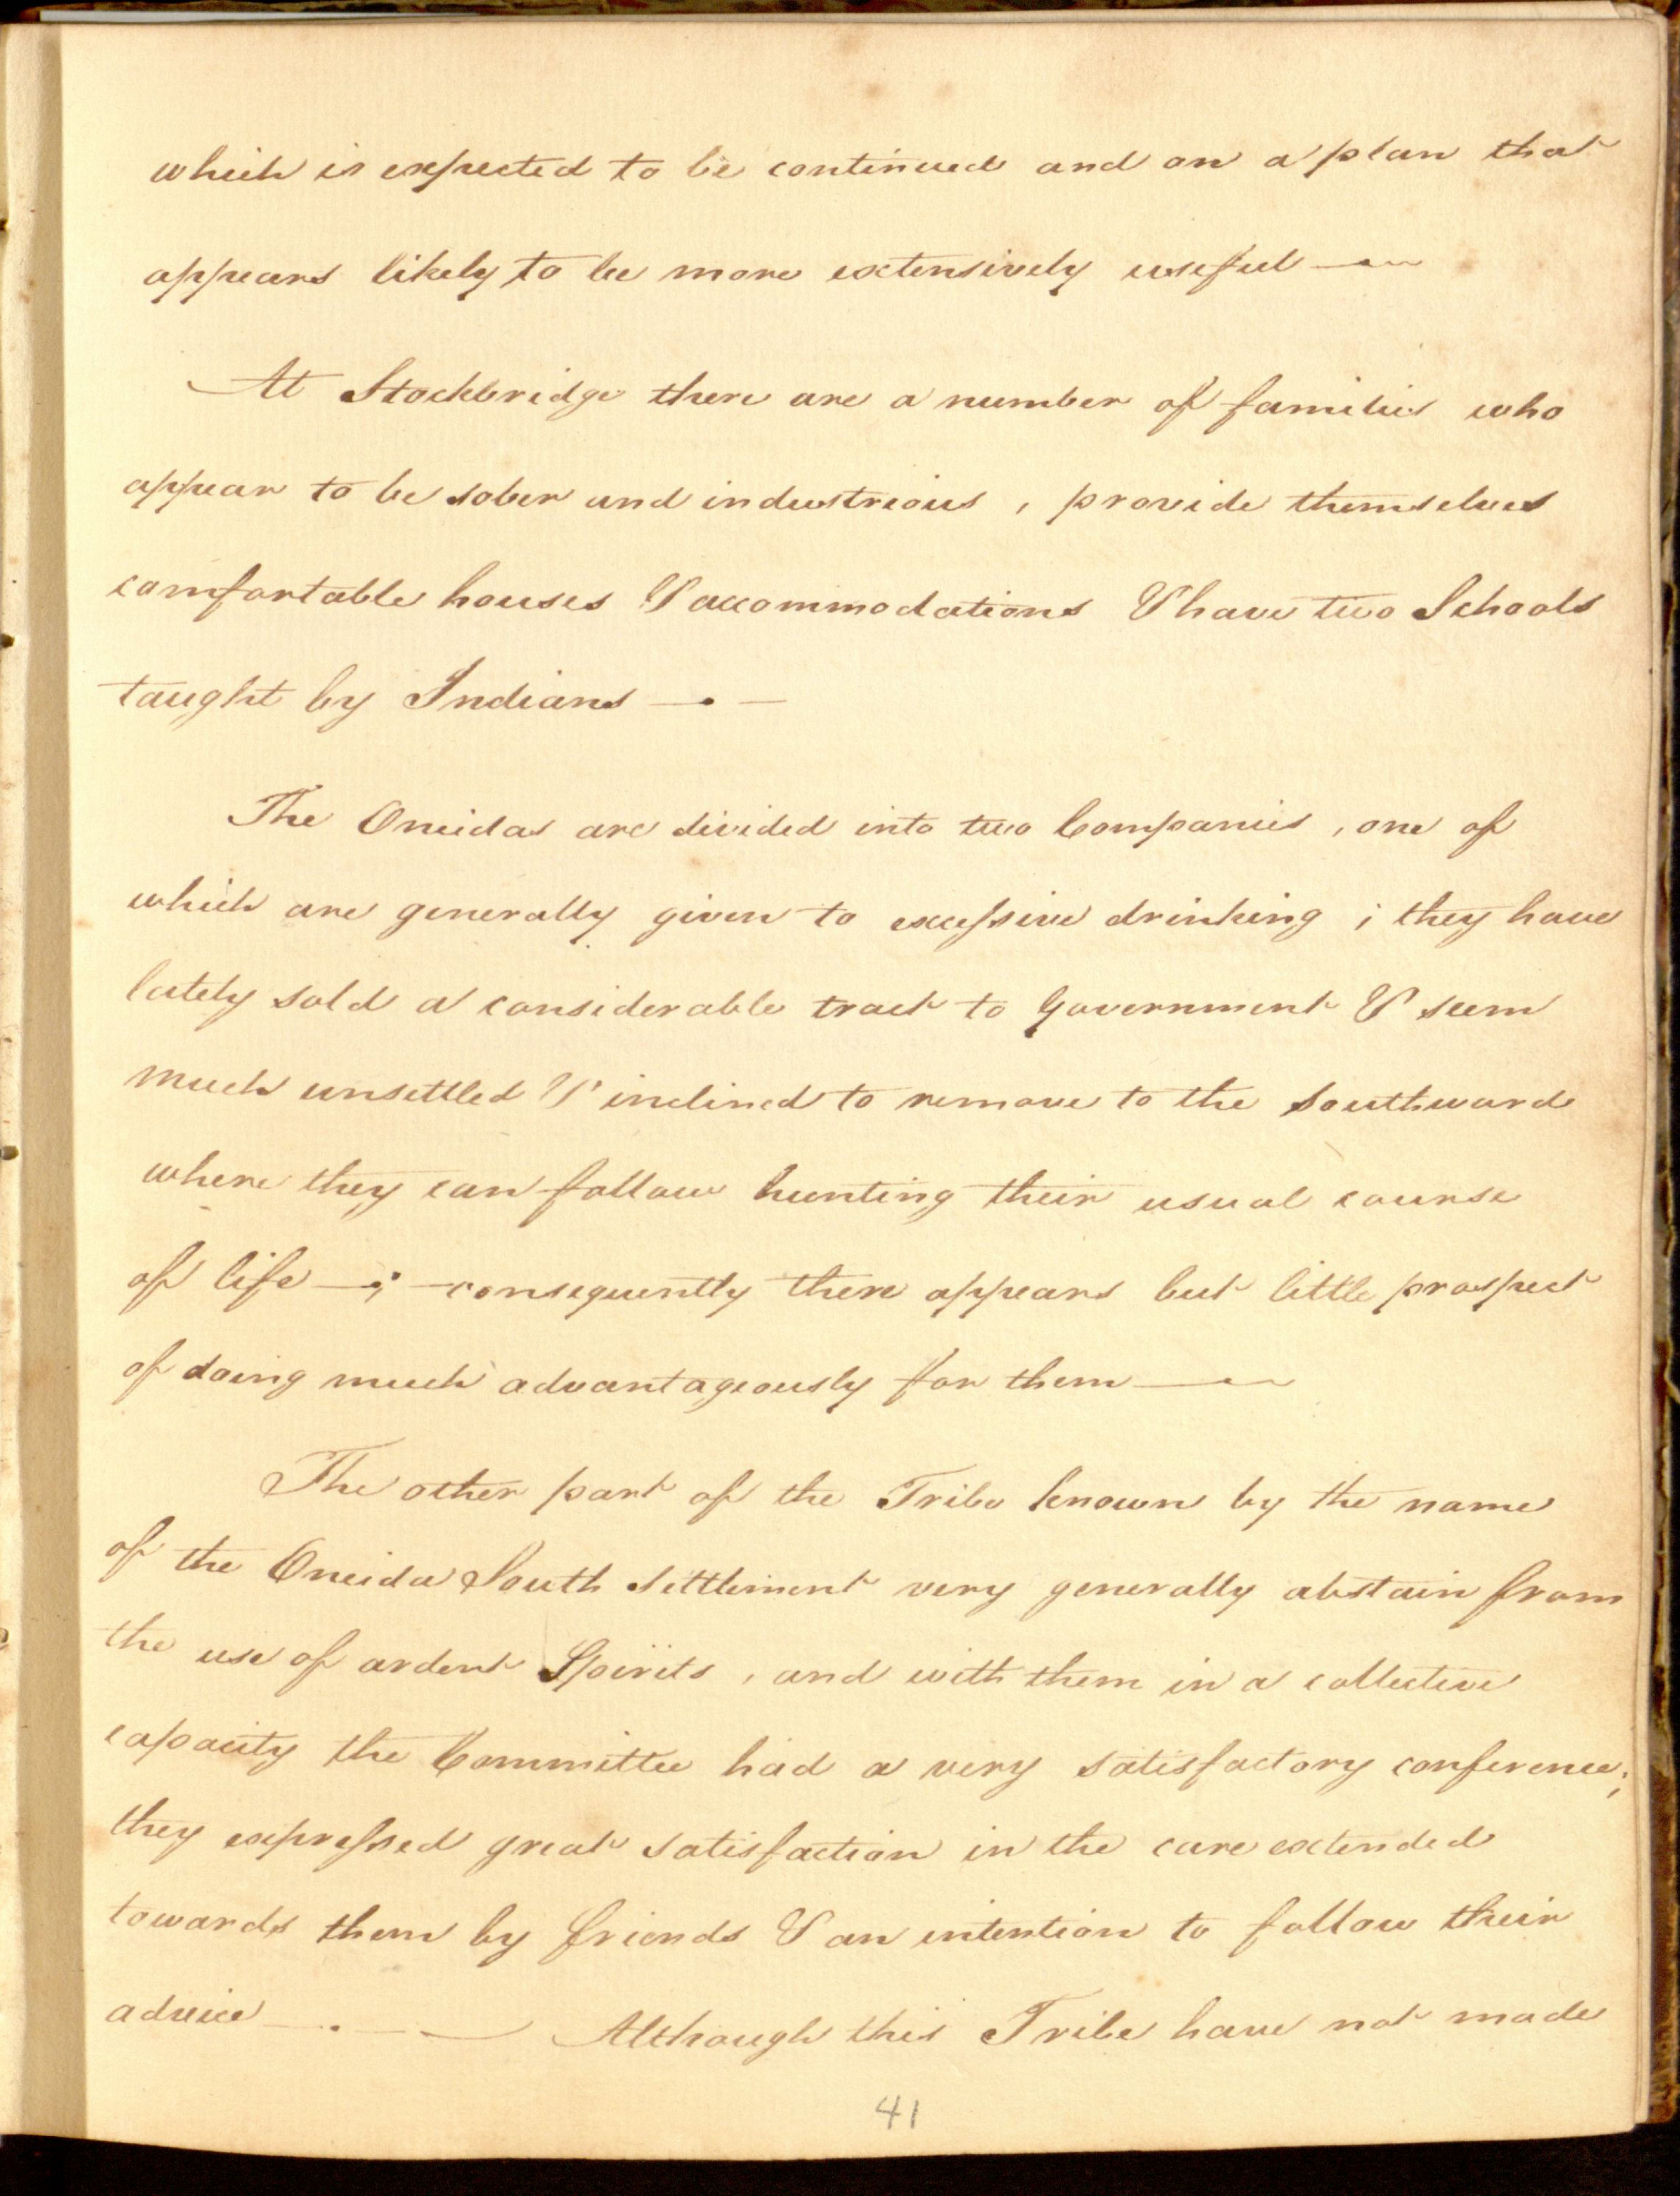 which is expected to be continued and on a plan that
appears likely to be more extensively useful —
At Stockbridge there are a number of families who
appear to be sober and industrious, provide themselves
comfortable houses & accommodations & have two Schools
taught by Indians — . —
The Oneidas are divided into two Companies, one of
which are generally given to excessive drinking; they have
lately sold a considerable tract to Government & seem
much unsettled & inclined to remove to the Southward
where they can follow hunting their usual course
of life —; — consequently there appears but little prospect
of doing much advantageously for them —
The other part of the Tribe known by the name
of the Oneida South Settlement very generally abstain from
the use of ardent Spirits, and with them in a collective
capacity the Committee had a very satisfactory conference;
they expressed great satisfaction in the care extended
towards them by friends & an intention to follow their
advice — . — — Although this Tribe have not made
41